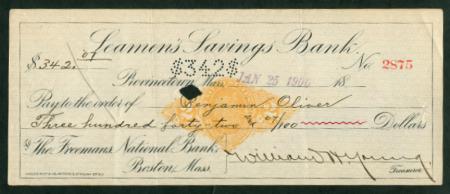 Seamen's Savings Bank,
$342.07 $342$ No 2875
Provincetown, Mass. JAN 25 1900 18
Pay to the order of Benjamin Oliver
Three hundred forty-two & 07/100 Dollars
To The Freemans National Bank,
Boston, Mass. William H Young,
Treasurer